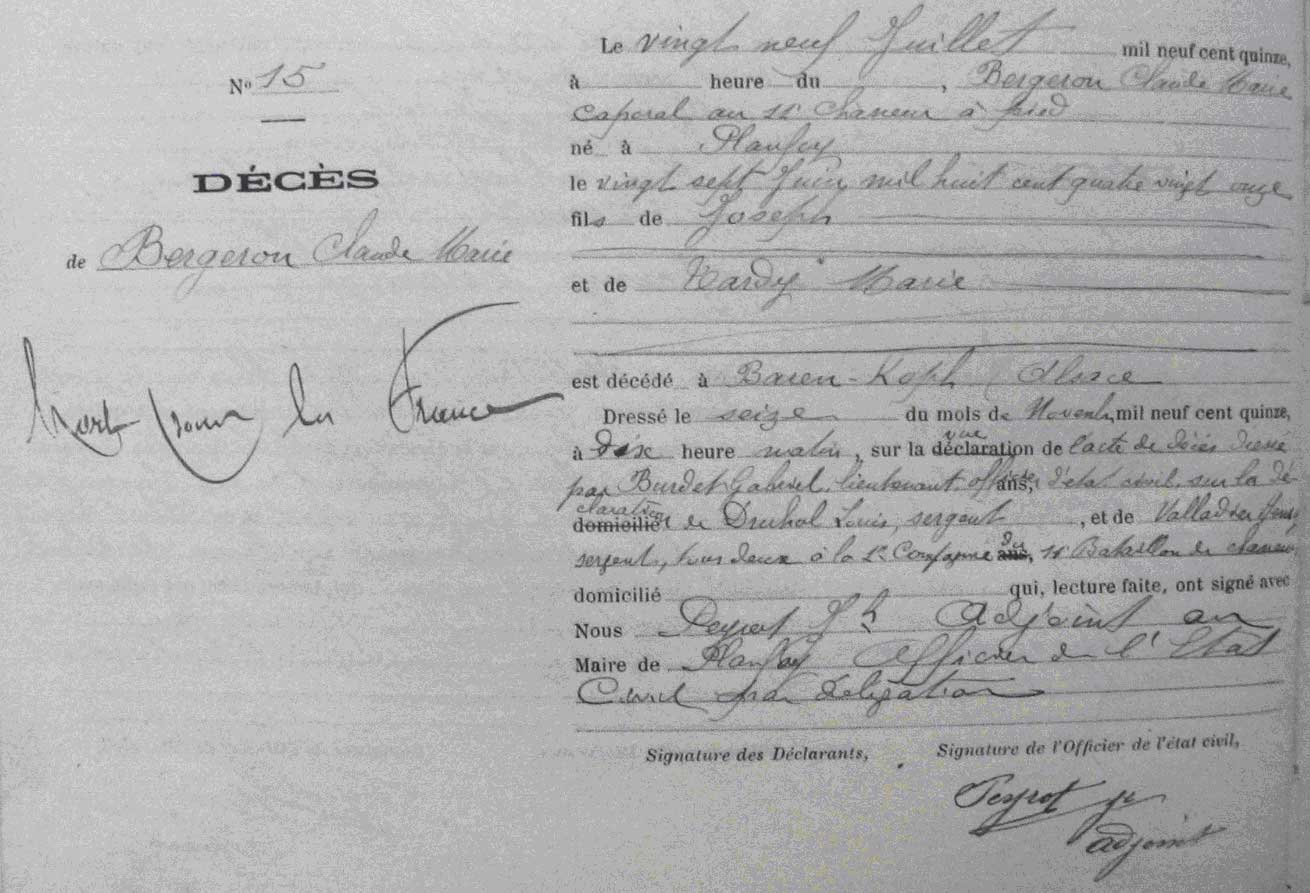 Nº 15
DÉCÈS
de Bergeron Claude Marie
Mort pour la France
Le vingt neuf Juillet mil neuf cent quinze,
à heure du , Bergeron Claude Marie
Caporal au 11e Chasseur à pied
né à Planfoy
le vingt sept Juin mil huit cent quatre vingt onze
fils de Joseph
et de Nardy Marie
est décédé à Baren-Koph Alsace
Dressé le seize du mois de Novemb, mil neuf cent quinze,
à dix heure matin, sur la vue déclaration de l'acte de décès dressé
par Burdet Gabriel, lieutenant, officier ans, d'état civil, sur la dé-
claration domicilié de Druhol Louis, sergent , et de Valladier
sergent, tous deux à la 1e Compagnie du ans, 11e Bataillon de chasseurs
domicilié qui, lecture faite, ont signé avec
Nous Peyrot Adjoint au
Maire de Planfoy Officier de l'Etat
Civil par délégation
Signature des Déclarants, Signature de l'Officier de l'état civil,
Peyrot
adjoint